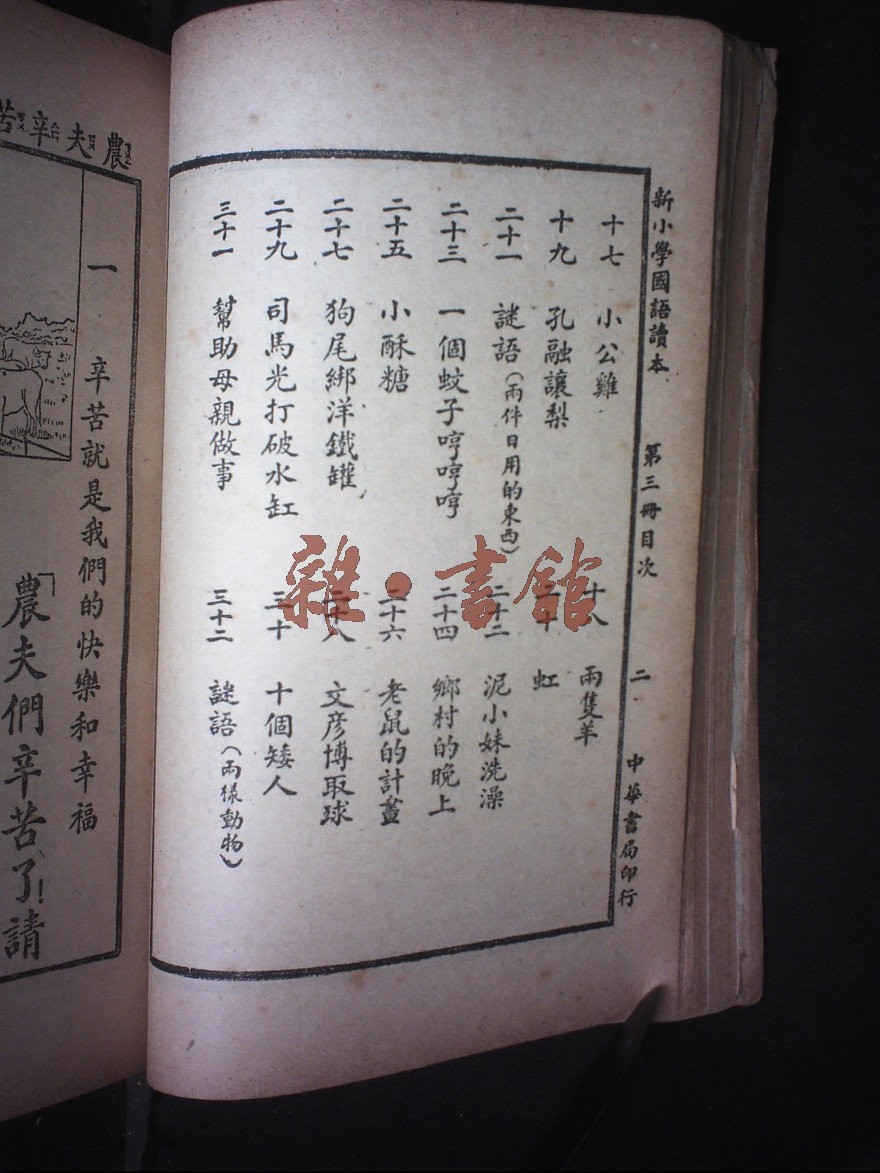 新小學國語讀本 第三冊目次 二 中華書局印行
十七 小公雞 十八 兩隻羊
十九 孔融讓梨 二十 虹
二十一 謎語（兩件日用的東西） 二十二 泥小妹洗澡
二十三 一個蚊子哼哼哼 二十四 鄉村的晚上
二十五 小酥糖 二十六 老鼠的計畫
二十七 狗尾綁洋鐵罐 二十八 文彥博取球
二十九 司馬光打破水缸 三十 十個矮人
三十一 幫助母親做事 三十二 謎語（兩樣動物）
雜·書館
農夫辛苦
一 辛苦就是我們的快樂和幸福
「農夫們辛苦了！請